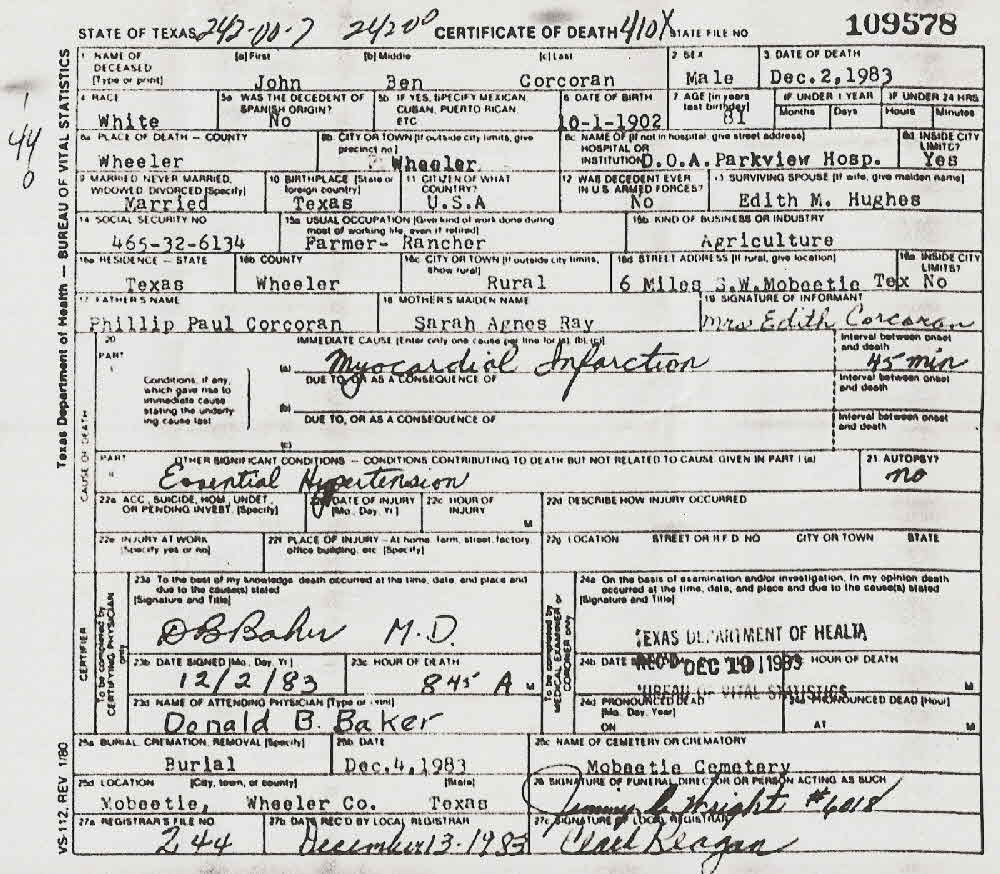 STATE OF TEXAS 242-00-7 24200 CERTIFICATE OF DEATH 410X STATE FILE NO 109578
1 NAME OF DECEASED [Type or print] [a] First [b] Middle [c] Last 2 SEX 3. DATE OF DEATH
John Ben Corcoran Male Dec. 2, 1983
4 RACE 5a WAS THE DECEDENT OF SPANISH ORIGIN? 5b IF YES, SPECIFY MEXICAN, CUBAN, PUERTO RICAN ETC 6 DATE OF BIRTH 7 AGE [in years last birthday] IF UNDER 1 YEAR IF UNDER 24 HRS
Months Days Hours Minutes
White No 10-1-1902 81
8a PLACE OF DEATH — COUNTY 8b. CITY OR TOWN [If outside city limits, give precinct no] 8c NAME OF [If not in hospital, give street address] HOSPITAL OR INSTITUTION 8d INSIDE CITY LIMITS?
Wheeler Wheeler D.O.A. Parkview Hosp. Yes
9 MARRIED NEVER MARRIED, WIDOWED DIVORCED [Specify] 10 BIRTHPLACE [State or foreign country] 11 CITIZEN OF WHAT COUNTRY? 12 WAS DECEDENT EVER IN U S ARMED FORCES? SURVIVING SPOUSE [If wife, give maiden name]
Married Texas U.S.A No Edith M. Hughes
14 SOCIAL SECURITY NO 15a USUAL OCCUPATION [Give kind of work done during most of working life, even if retired] 15b KIND OF BUSINESS OR INDUSTRY
465-32-6134 Farmer- Rancher Agriculture
16a RESIDENCE — STATE 16b COUNTY 16c CITY OR TOWN [If outside city limits, show rural] 16d STREET ADDRESS [If rural, give location] 16e INSIDE CITY LIMITS?
Texas Wheeler Rural 6 Miles S.W. Mobeetie Tex No
17 FATHER'S NAME 18 MOTHER'S MAIDEN NAME 19 SIGNATURE OF INFORMANT
Phillip Paul Corcoran Sarah Agnes Ray Mrs Edith Corcoran
20 PART I IMMEDIATE CAUSE [Enter only one cause per line for (a) (b) (c)] Interval between onset and death
(a) Myocardial Infarction 45 min
Conditions, if any, which gave rise to immediate cause stating the underlying cause last
DUE TO, OR AS A CONSEQUENCE OF Interval between onset and death
(b)
DUE TO, OR AS A CONSEQUENCE OF Interval between onset and death
(c)
PART II OTHER SIGNIFICANT CONDITIONS — CONDITIONS CONTRIBUTING TO DEATH BUT NOT RELATED TO CAUSE GIVEN IN PART I (a) 21. AUTOPSY?
Essential Hypertension no
22a ACC, SUICIDE, HOM, UNDET, OR PENDING INVEST. [Specify] DATE OF INJURY [Mo, Day, Yr] 22c HOUR OF INJURY M 22d DESCRIBE HOW INJURY OCCURRED
22e INJURY AT WORK [Specify yes or no] 22f PLACE OF INJURY — At home, farm, street, factory, office building, etc [Specify] 22g LOCATION STREET OR R F D NO CITY OR TOWN STATE
23a To the best of my knowledge death occurred at the time, date, and place and due to the cause(s) stated [Signature and Title]
24a On the basis of examination and/or investigation, in my opinion death occurred at the time, date, and place and due to the cause(s) stated [Signature and Title]
DB Baker M.D.
TEXAS DEPARTMENT OF HEALTH
23b DATE SIGNED [Mo, Day, Yr] 23c HOUR OF DEATH 24b DATE REC'D DEC 19 1983 HOUR OF DEATH
12/2/83 8 45 A M
BUREAU OF VITAL STATISTICS
23d NAME OF ATTENDING PHYSICIAN [Type or print] 24d PRONOUNCED DEAD [Mo. Day, Year] ON PRONOUNCED DEAD [Hour] AT M
Donald B. Baker
25a BURIAL, CREMATION, REMOVAL [Specify] 25b DATE 25c NAME OF CEMETERY OR CREMATORY
Burial Dec.4,1983 Mobeetie Cemetery
25d LOCATION [City, town, or county] [State] 26 SIGNATURE OF FUNERAL DIRECTOR OR PERSON ACTING AS SUCH
Mobeetie, Wheeler Co. Texas Jimmy G Wright #6018
27a REGISTRAR'S FILE NO 27b DATE REC'D BY LOCAL REGISTRAR 27c SIGNATURE OF LOCAL REGISTRAR
244 December 13-1983 Reagan
Texas Department of Health — BUREAU OF VITAL STATISTICS
VS-112, REV 1/80
CAUSE OF DEATH
CERTIFIER
To be completed by CERTIFYING PHYSICIAN only
To be completed by MEDICAL EXAMINER or CORONER only
44
0